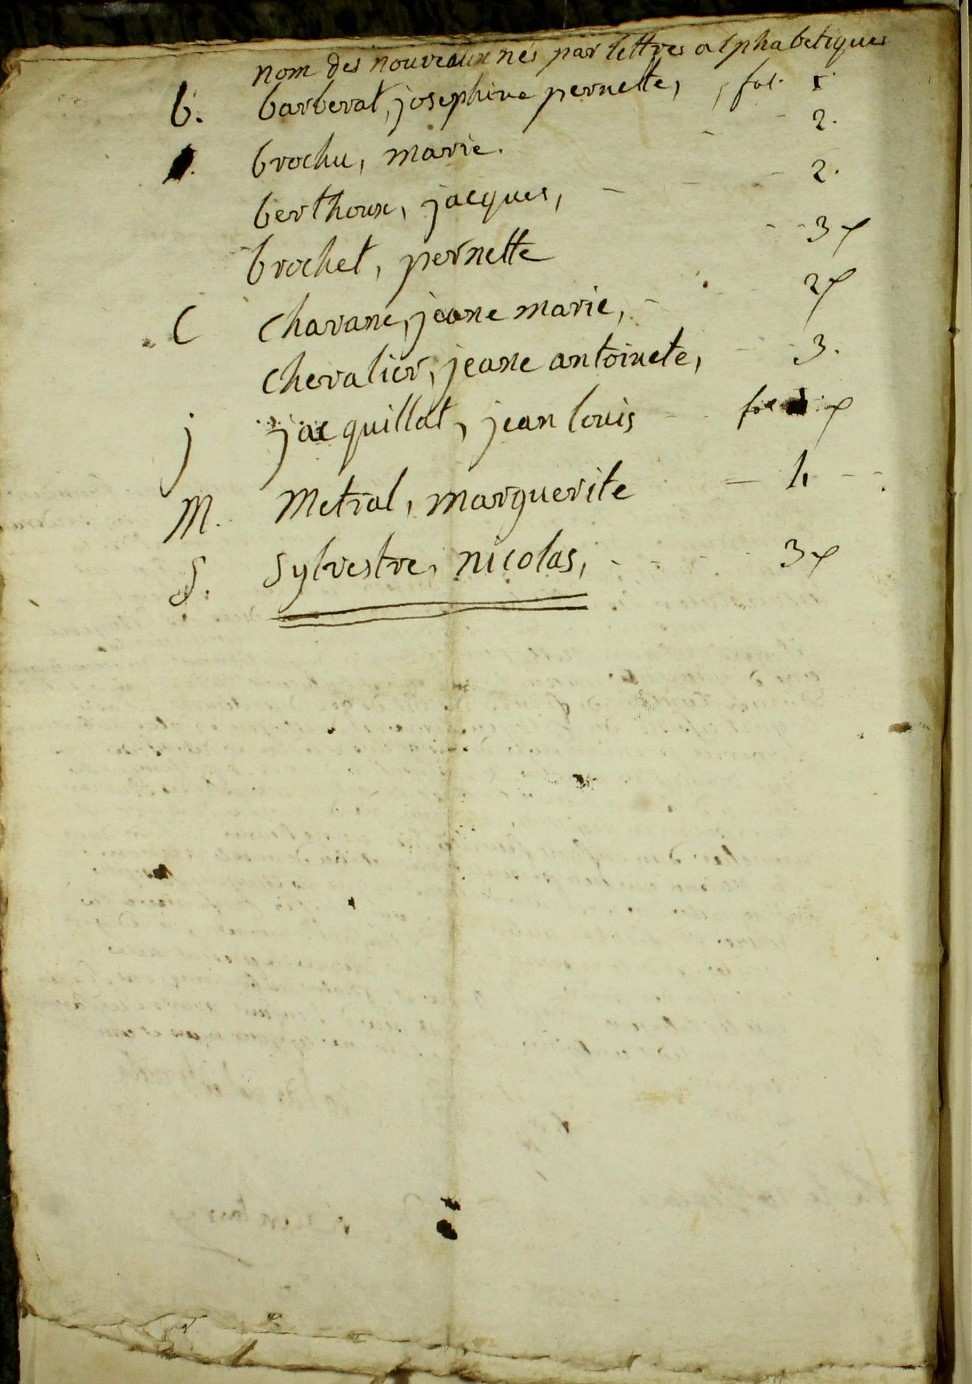 nom des nouveaux nés par lettres alphabetiques
b. barberat, josephine pernette, fol. 1.
brochu, marie. 2.
berthoux, jacques, 2.
brochet, pernette 3
C chavane, jeane marie, 2
chevalier, jeane antoinete, 3.
j jacquillat, jean louis fol
M. Metral, marguerite 4
S. Sylvestre, nicolas, 3